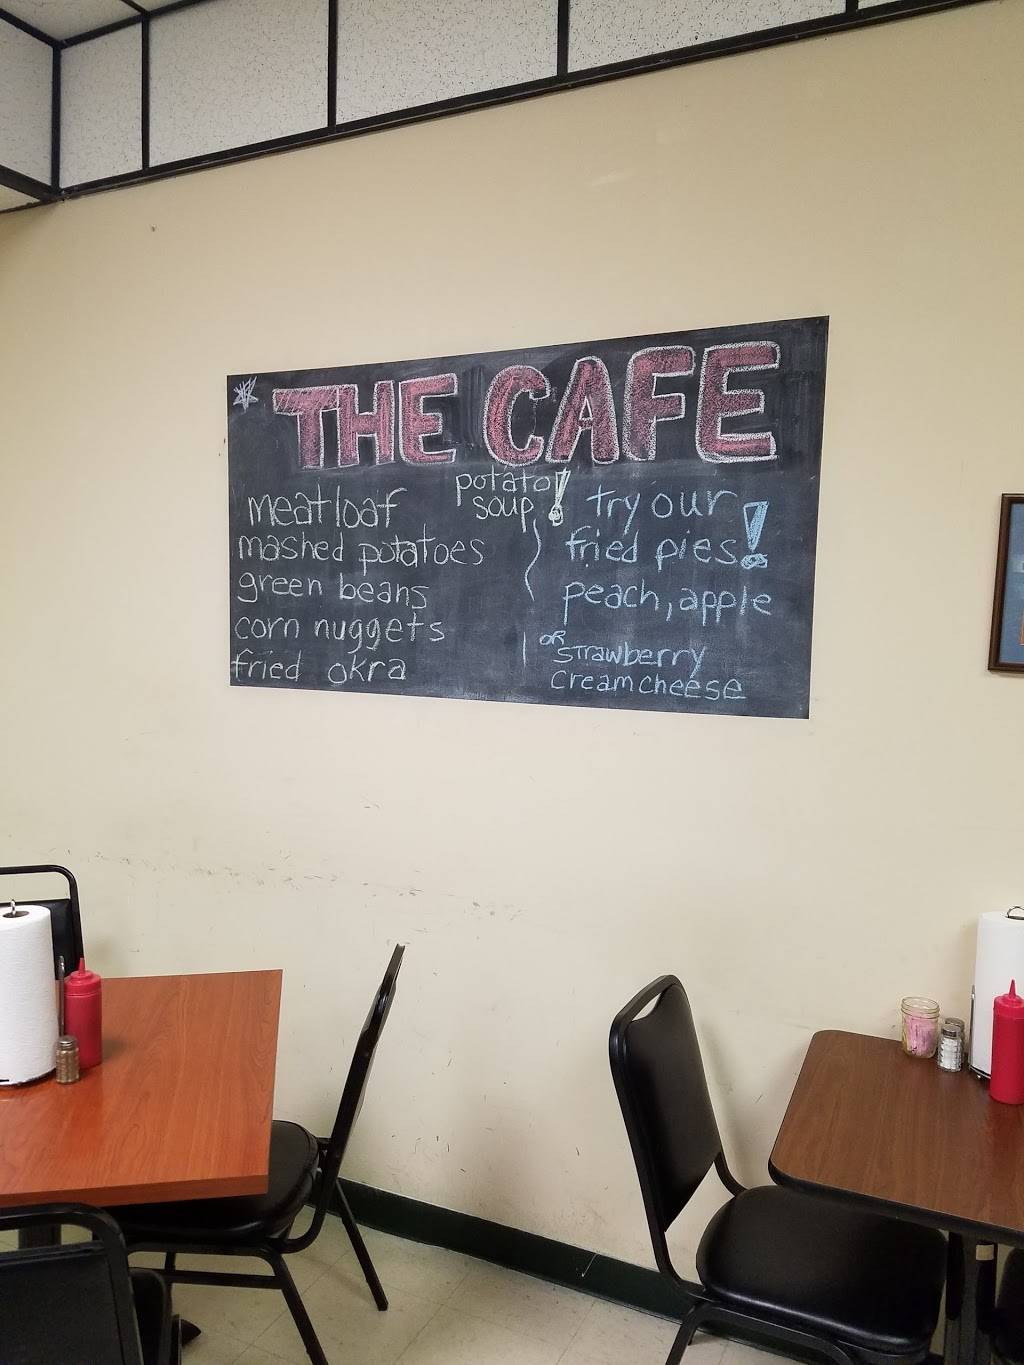 THE CAFE
meatloaf
mashed potatoes
green beans
corn nuggets
fried okra
potato
soup!
try our
fried pies!
peach, apple
or strawberry
cream cheese